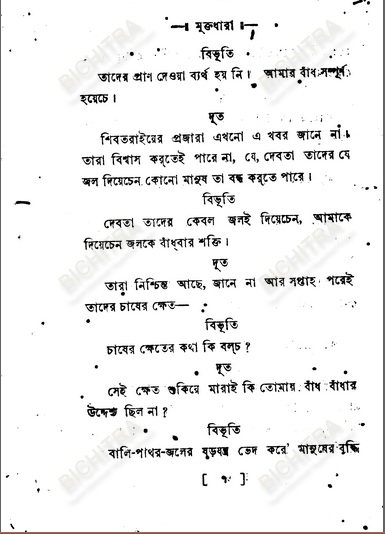 মুক্তধারা
বিভূতি
তাদের প্রাণ দেওয়া ব্যর্থ হয় নি। আমার বাঁধ সম্পূর্ণ
হয়েচে।
দূত
শিবতরাইয়ের প্রজারা এখনো এ খবর জানে না।
তারা বিশ্বাস করতেই পারে না, যে, দেবতা তাদের যে
জল দিয়েচেন কোনো মানুষ তা বন্ধ করতে পারে।
বিভূতি
দেবতা তাদের কেবল জলই দিয়েচেন, আমাকে
দিয়েচেন জলকে বাঁধবার শক্তি।
দূত
তারা নিশ্চিন্ত আছে, জানে না আর সপ্তাহ পরেই
তাদের চাষের ক্ষেত—
বিভূতি
চাষের ক্ষেতের কথা কি বলচ?
দূত
সেই ক্ষেত শুকিয়ে মারাই কি তোমার বাঁধ বাঁধার
উদ্দেশ্য ছিল না?
বিভূতি
বালি-পাথর-জলের ষড়যন্ত্র ভেদ করে' মানুষের বুদ্ধি
BICHITRA